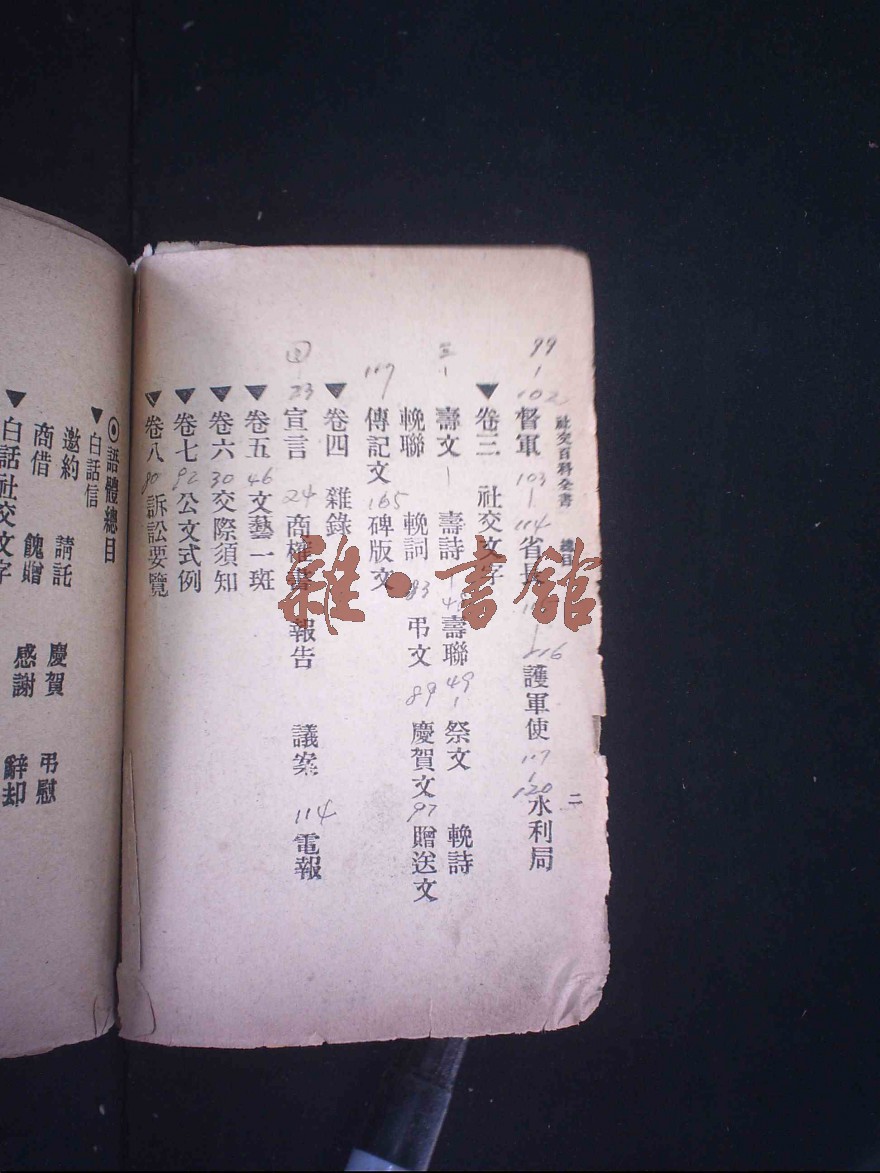 社交百科全書 總目 二
99
102
督軍 103 114 省長 116 護軍使 117 120 水利局
▼卷三 社交文字
三
壽文 壽詩 48 壽聯 49 祭文 輓詩
輓聯 輓詞 83 弔文 89 慶賀文 97 贈送文
107
傳記文 165 碑版文
▼卷四 雜錄
四
23
宣言 24 商榷書 報告 議案 114 電報
▼卷五 46 文藝一斑
▼卷六 30 交際須知
▼卷七 82 公文式例
▼卷八 80 訴訟要覽
雜·書館
⦿語體總目
▼白話信
邀約 請託 慶賀 弔慰
商借 餽贈 感謝 辭却
▼白話社交文字